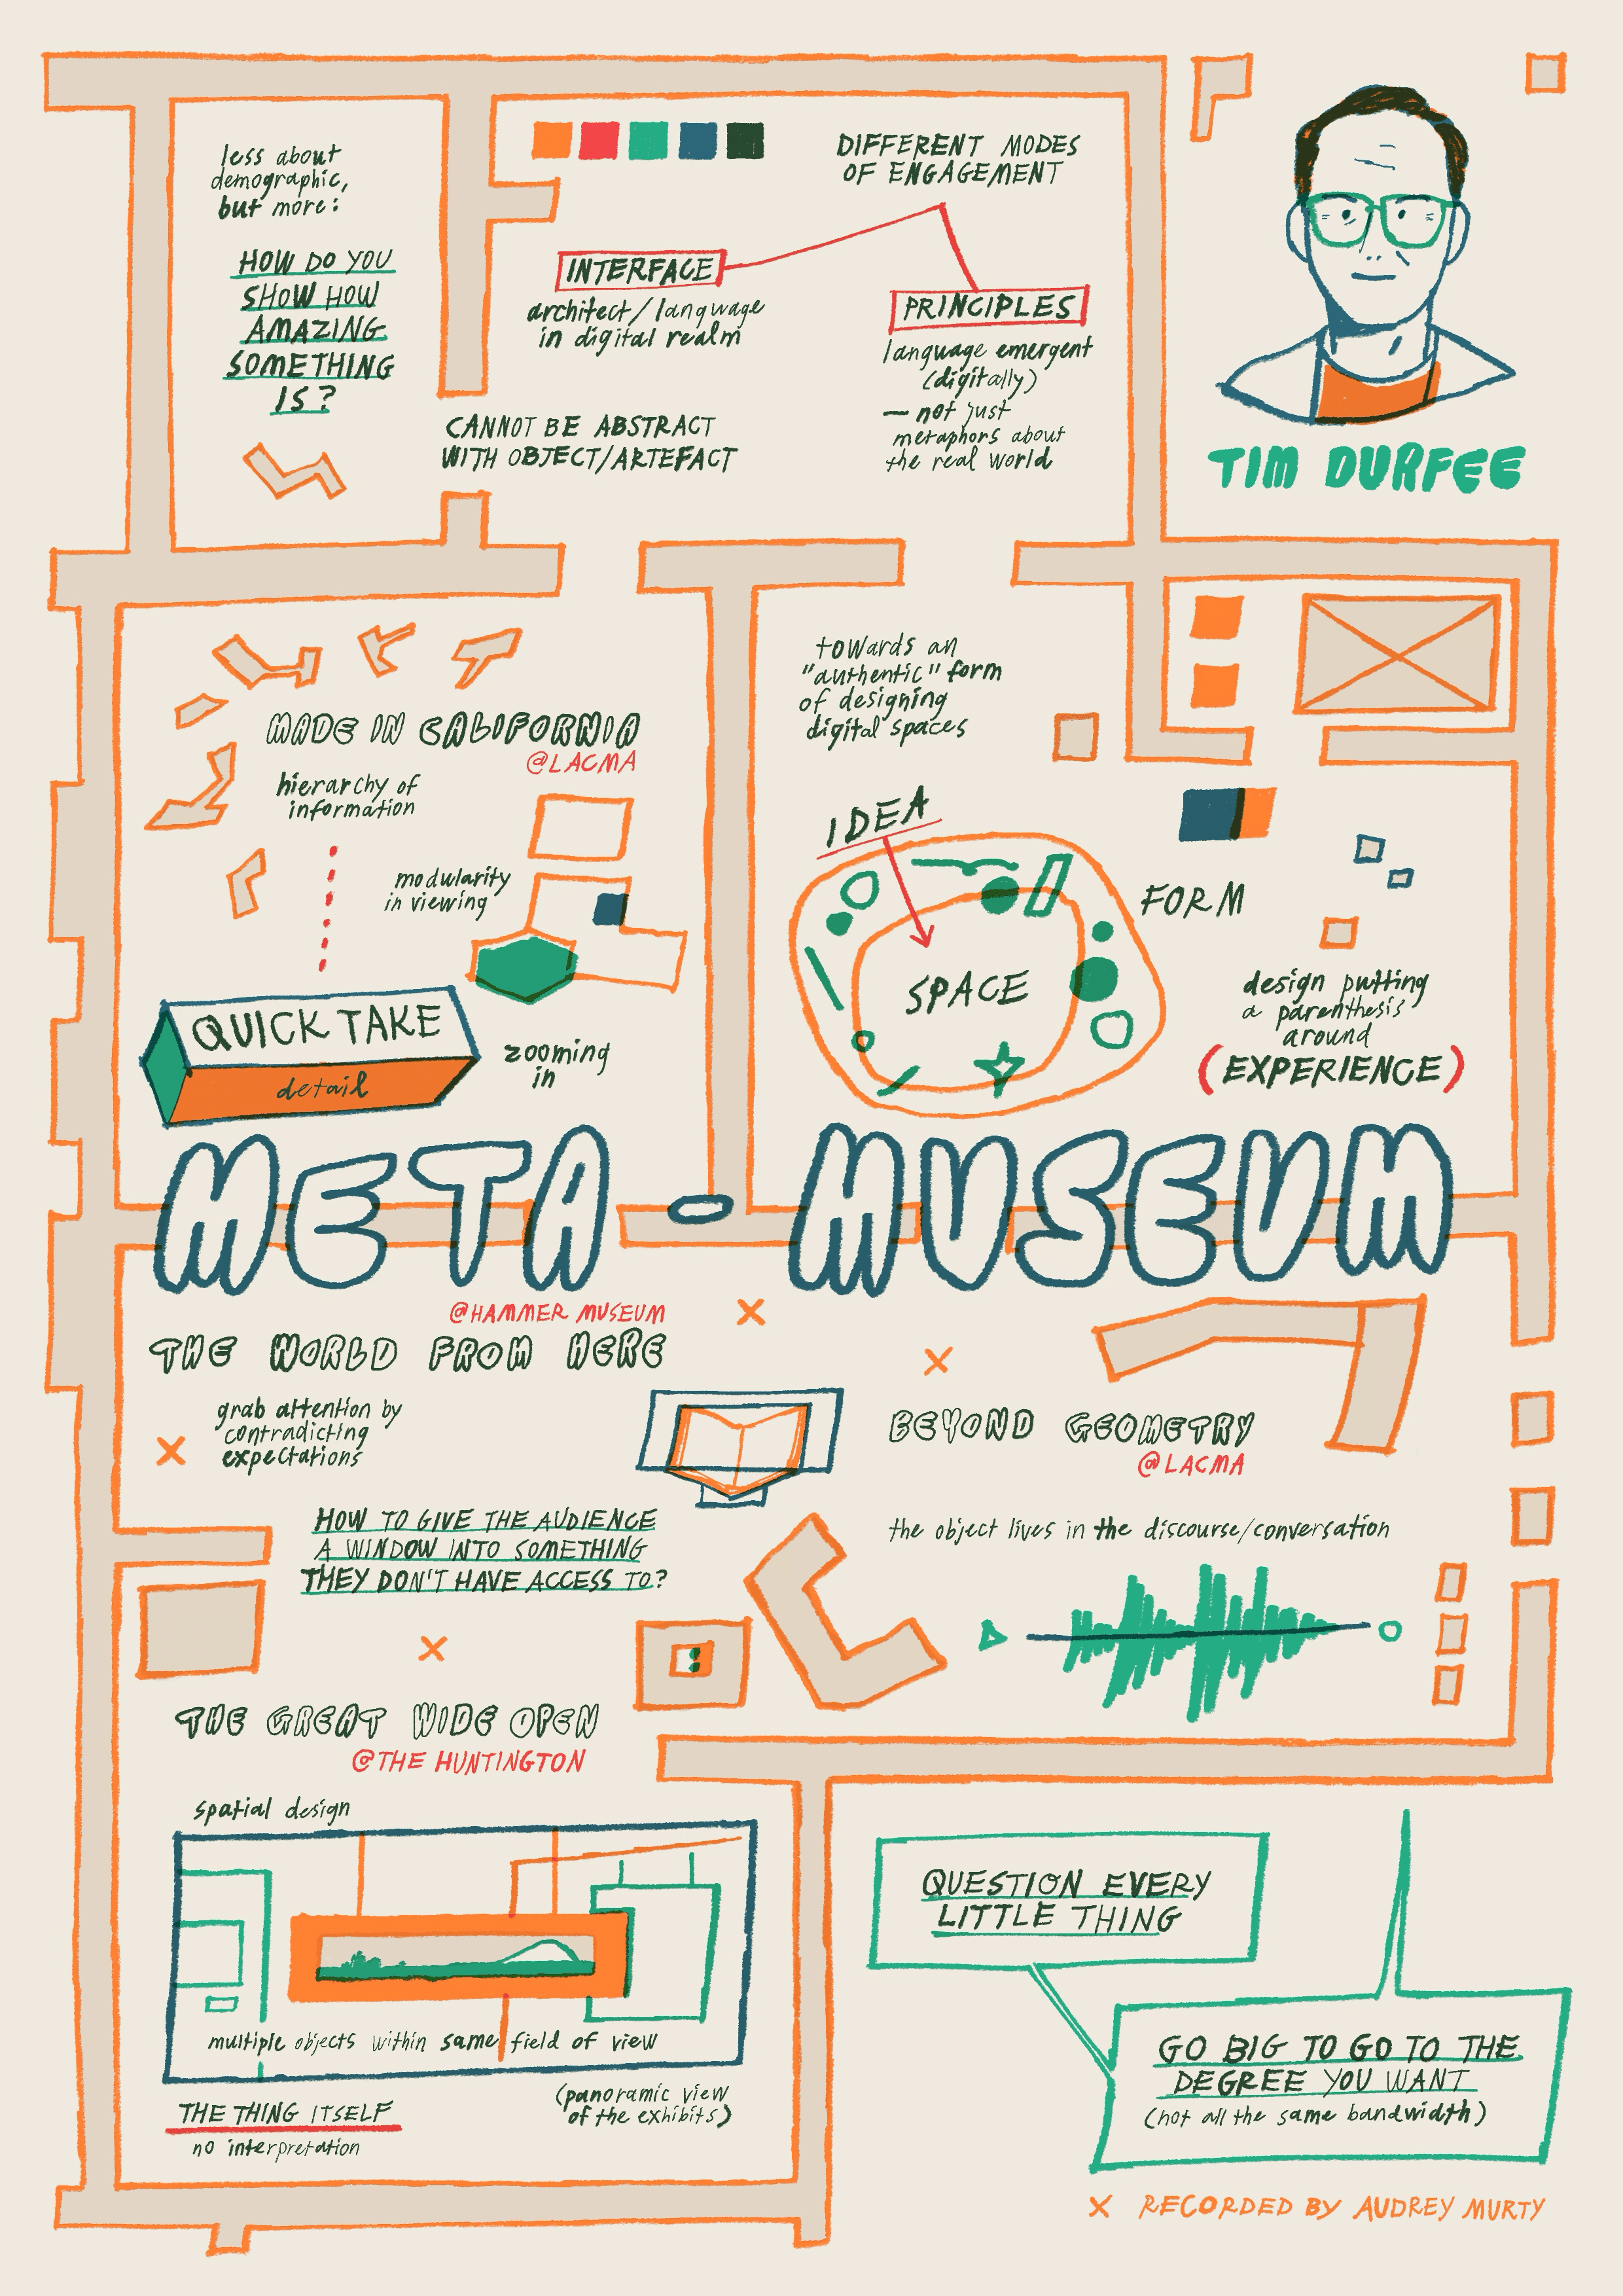 less about
demographic,
but more:
HOW DO YOU
SHOW HOW
AMAZING
SOMETHING
IS?
DIFFERENT MODES
OF ENGAGEMENT
INTERFACE
architect/language
in digital realm
PRINCIPLES
language emergent
(digitally)
— not just
metaphors about
the real world
CANNOT BE ABSTRACT
WITH OBJECT/ARTEFACT
TIM DURFEE
MADE IN CALIFORNIA
@LACMA
hierarchy of
information
modularity
in viewing
QUICK TAKE
detail
zooming
in
towards an
"authentic" form
of designing
digital spaces
IDEA
SPACE
FORM
design putting
a parenthesis
around
(EXPERIENCE)
META - MUSEUM
@HAMMER MUSEUM
THE WORLD FROM HERE
grab attention by
contradicting
expectations
HOW TO GIVE THE AUDIENCE
A WINDOW INTO SOMETHING
THEY DON'T HAVE ACCESS TO?
BEYOND GEOMETRY
@LACMA
the object lives in the discourse/conversation
THE GREAT WIDE OPEN
@THE HUNTINGTON
spatial design
multiple objects within same field of view
(panoramic view
of the exhibits)
THE THING ITSELF
no interpretation
QUESTION EVERY
LITTLE THING
GO BIG TO GO TO THE
DEGREE YOU WANT
(not all the same bandwidth)
X RECORDED BY AUDREY MURTY